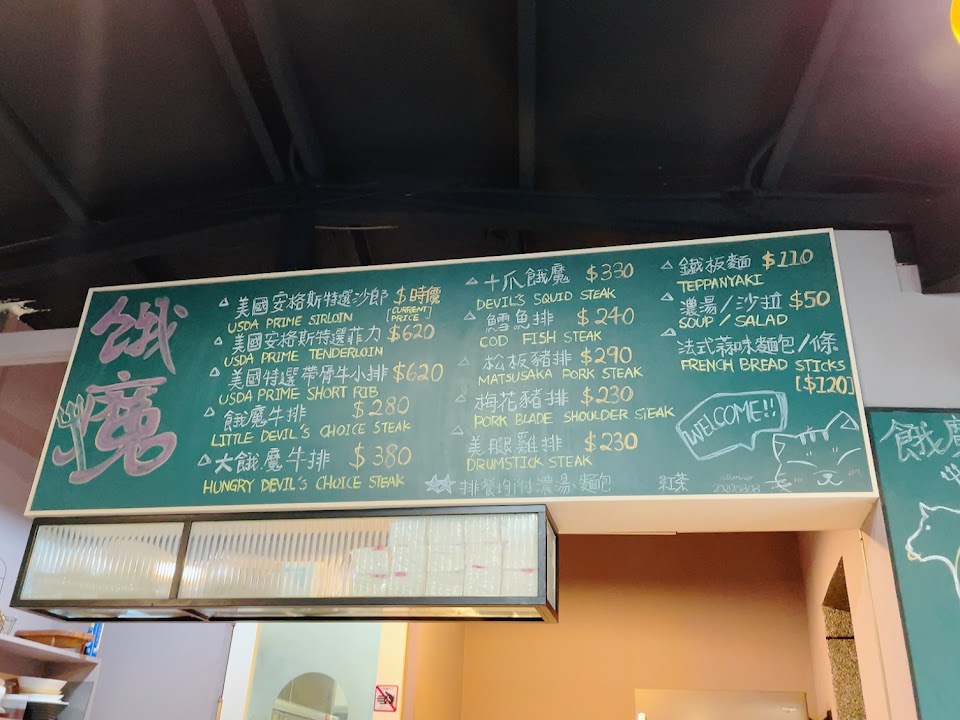 餓魔
美國安格斯特選沙郎 $時價
USDA PRIME SIRLOIN [CURRENT PRICE]
美國安格斯特選菲力 $620
USDA PRIME TENDERLOIN
美國特選帶骨牛小排 $620
USDA PRIME SHORT RIB
餓魔牛排 $280
LITTLE DEVIL'S CHOICE STEAK
大餓魔牛排 $380
HUNGRY DEVIL'S CHOICE STEAK
十爪餓魔 $330
DEVIL'S SQUID STEAK
鱈魚排 $240
COD FISH STEAK
松板豬排 $290
MATSUSAKA PORK STEAK
梅花豬排 $230
PORK BLADE SHOULDER STEAK
美腿雞排 $230
DRUMSTICK STEAK
排餐均附濃湯 麵包 紅茶
鐵板麵 $110
TEPPANYAKI
濃湯/沙拉 $50
SOUP / SALAD
法式蒜味麵包/條
FRENCH BREAD STICKS
[$120]
WELCOME!!
餓魔